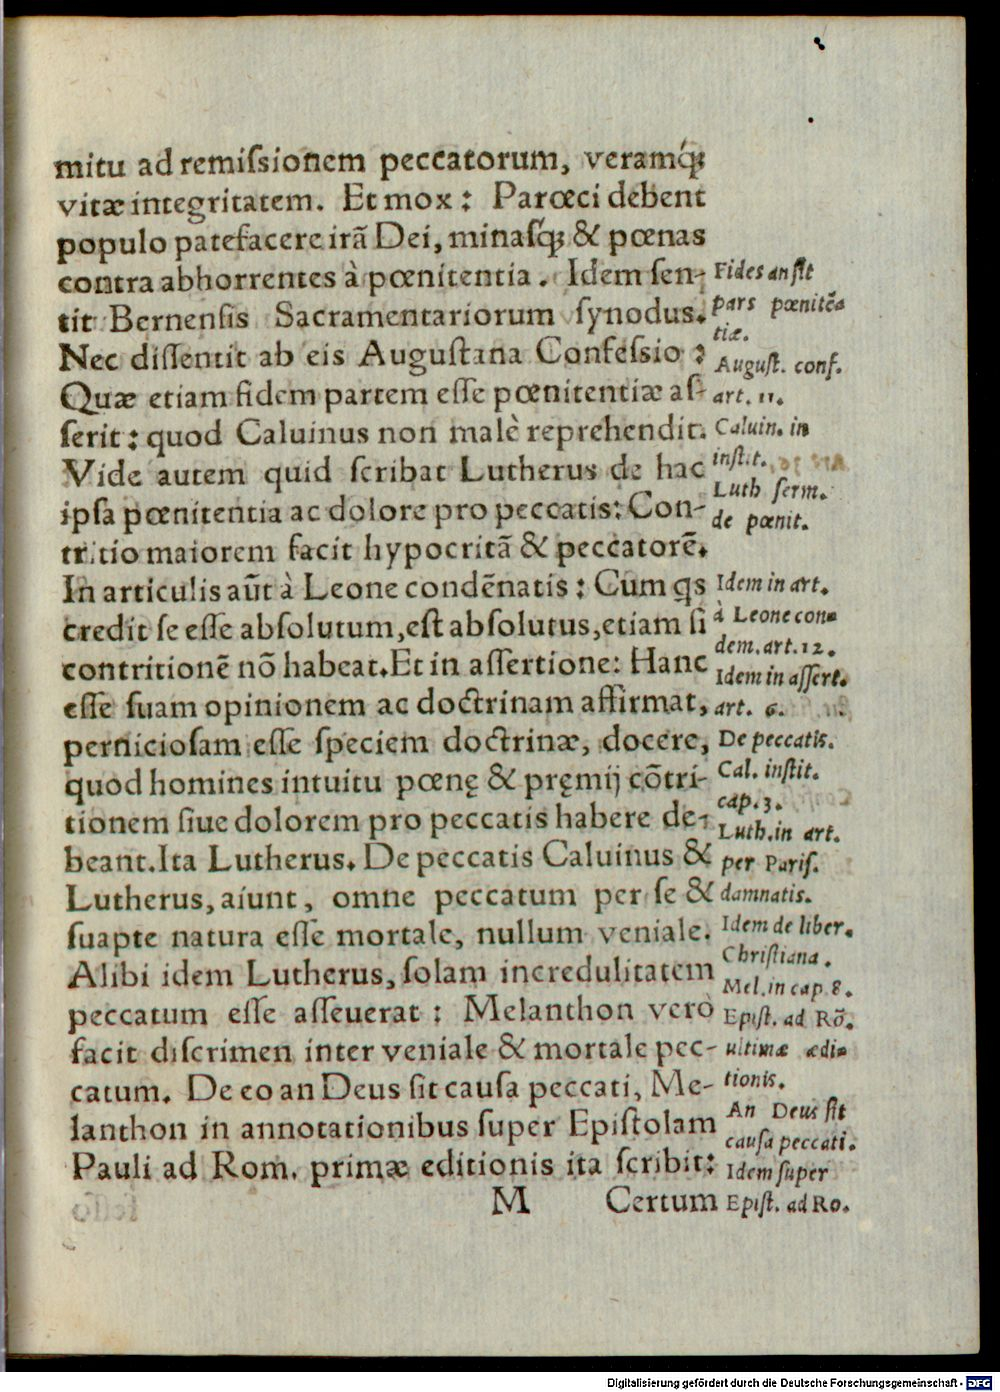 mitu ad remiſsionem peccatorum, veramq́;
vitæ integritatem. Et mox: Parœci debent
populo patefacere irã Dei, minaſq́; & pœnas
contra abhorrentes à pœnitentia. Idem ſen-
tit Bernenſis Sacramentariorum ſynodus.
Nec diſſentit ab eis Auguſtana Confeſsio:
Quæ etiam fidem partem eſſe pœnitentiæ aſ-
ſerit: quod Caluinus non malè reprehendit.
Vide autem quid ſcribat Lutherus de hac
ipſa pœnitentia ac dolore pro peccatis: Con-
tritio maiorem facit hypocritã & peccatorẽ.
In articulis aũt à Leone condẽnatis: Cum qs
credit ſe eſſe abſolutum, eſt abſolutus, etiam ſi
contritionẽ nõ habeat. Et in aſſertione: Hanc
eſſe ſuam opinionem ac doctrinam affirmat,
pernicioſam eſſe ſpeciem doctrinæ, docere,
quod homines intuitu pœnę & pręmij cõtri-
tionem ſiue dolorem pro peccatis habere de-
beant. Ita Lutherus. De peccatis Caluinus &
Lutherus, aiunt, omne peccatum per ſe &
ſuapte natura eſſe mortale, nullum veniale.
Alibi idem Lutherus, ſolam incredulitatem
peccatum eſſe aſſeuerat: Melanthon verò
facit diſcrimen inter veniale & mortale pec-
catum. De eo an Deus ſit cauſa peccati, Me-
lanthon in annotationibus ſuper Epiſtolam
Pauli ad Rom. primæ editionis ita ſcribit:
M Certum
Fides an ſit
pars pœnitẽ-
tiæ.
Auguſt. conf.
art. 11.
Caluin. in
inſtit.
Luth ſerm.
de pœnit.
Idem in art.
à Leone con-
dem. art. 12.
Idem in aſſert.
art. 6.
De peccatis.
Cal. inſtit.
cap. 3.
Luth. in art.
per Pariſ.
damnatis.
Idem de liber.
Chriſtiana.
Mel. in cap 8.
Epiſt. ad Rõ.
ultimæ ædi-
tionis.
An Deus ſit
cauſa peccati.
Idem ſuper
Epiſt. ad Ro.
Digitalisierung gefördert durch die Deutsche Forschungsgemeinschaft - DFG